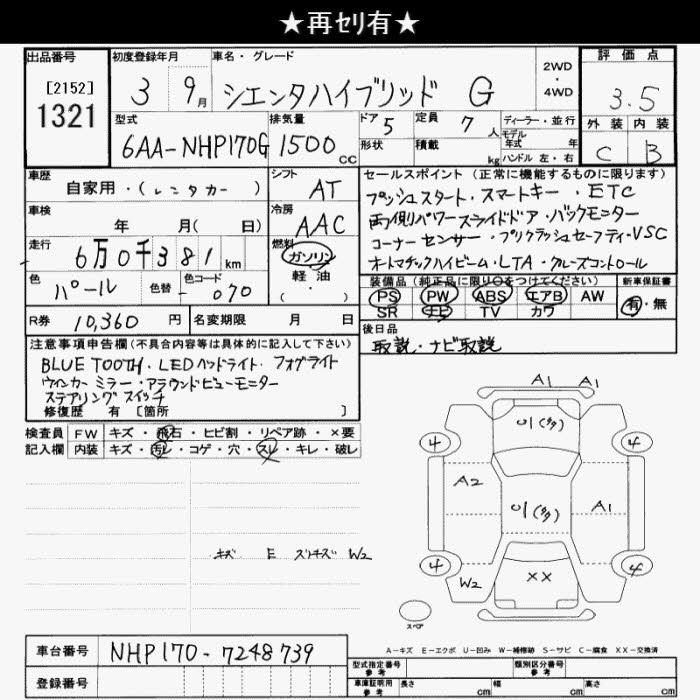 ★再セリ有★
出品番号 初度登録年月 車名・グレード 評価点
[2152] 2WD・4WD
1321 3 9月 シエンタハイブリッド G 3.5
型式 排気量 ドア 5 定員 7人 ディーラー・並行 外装 内装
6AA-NHP170G 1500cc 形状 積載 kg モデル年式 年 C B
ハンドル 左・右
車歴 シフト セールスポイント (正常に機能するものに限ります)
自家用・(レンタカー) AT プッシュスタート・スマートキー・ETC
車検 年 月( 日) 冷房 AAC 両側パワースライドドア・バックモニター
走行 6万0千381km 燃料 ガソリン コーナーセンサー・プリクラッシュセーフティ・VSC
軽油 オートマチックハイビーム・LTA・クルーズコントロール
・( )
色 パール 色替 色コード 070 装備品(純正品に限り○をつけてください) 新車保証書
PS PW ABS エアB AW 有・無
SR ナビ TV カワ
R券 10,360円 名変期限 月 日 後日品
取説・ナビ取説
注意事項申告欄(不具合内容等は具体的に記入して下さい)
BLUE TOOTH・LEDヘッドライト・フォグライト
ウィンカーミラー・アラウンドビューモニター
ステアリングスイッチ
修復歴 有 [箇所 ]
検査員 FW キズ・飛石・ヒビ割・リペア跡・×要
記入欄 内装 キズ・汚レ・コゲ・穴・スレ・キレ・破レ
A1 A1
U1(多)
4 4
A2 U1(多) A1
キズ E スリキズ W2
4 4
W2 XX
スペア
A-キズ E-エクボ U-凹み W-補修跡 S-サビ C-腐食 XX-交換済
車台番号 NHP170-7248739
登録番号
型式指定番号 参考 類別区分番号 参考
車庫証明用 参考 長さ cm 幅 cm 高さ cm